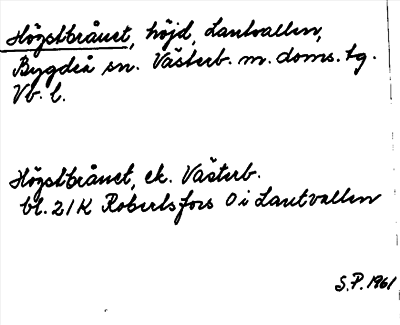 Högstbrånet, höjd, Lantvallen,
Bygdeå sn. Västerb. m. doms. tg.
Vb. l.
Högstbrånet, ek. Västerb.
bl. 21K Robertsfors O i Lantvallen
S.P. 1961